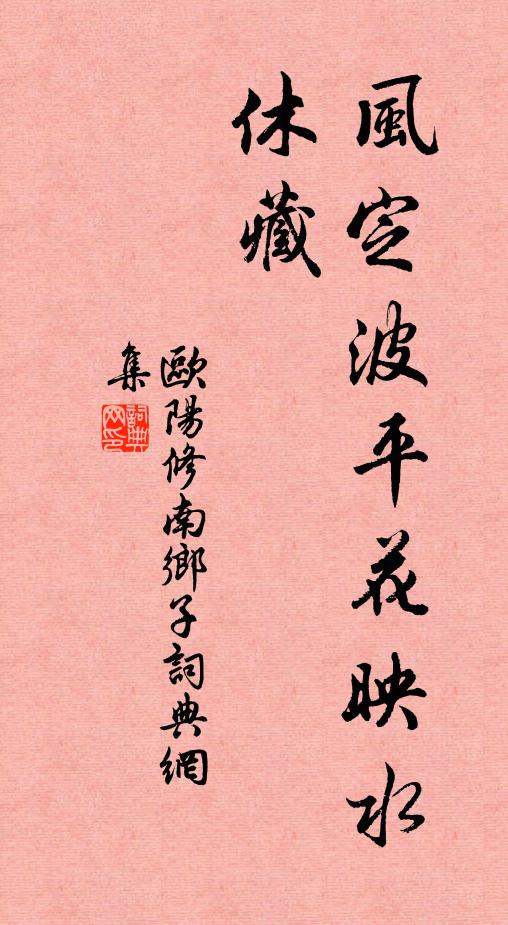 風定波平花映水
休藏
歐陽修南鄉子詞典網
集
詞典
网印